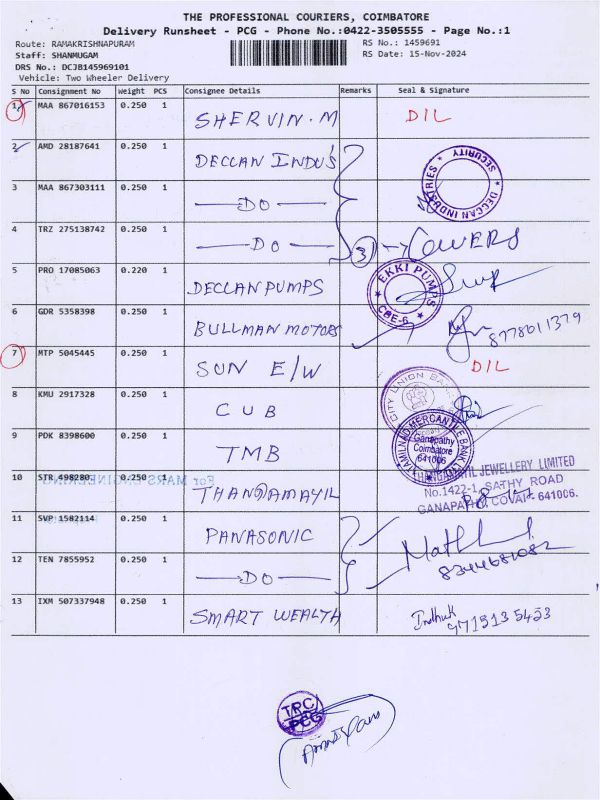 THE PROFESSIONAL COURIERS, COIMBATORE
Delivery Runsheet - PCG - Phone No.:0422-3505555 - Page No.:1
Route: RAMAKRISHNAPURAM RS No.: 1459691
Staff: SHANMUGAM RS Date: 15-Nov-2024
DRS No.: DCJB145969101
Vehicle: Two Wheeler Delivery
S No Consignment No Weight PCS Consignee Details Remarks Seal & Signature
1 MAA 867016153 0.250 1 SHERVIN.M DIL
2 AMD 28187641 0.250 1 DECCAN INDUS
DECCAN INDUSTRIES SECURITY
3 MAA 867303111 0.250 1 DO
4 TRZ 275138742 0.250 1 DO 3 COVERS
5 PRO 17085063 0.220 1 DECCAN PUMPS
EKKI PUMPS CBE-6
6 GDR 5358398 0.250 1 BULLMAN MOTORS 8778011379
7 MTP 5045445 0.250 1 SUN E/W DIL
8 KMU 2917328 0.250 1 CUB
CITY UNION BANK
9 PDK 8398600 0.250 1 TMB
TAMILNAD MERCANTILE BANK
Ganapathy
Coimbatore
641006
10 STR 498280 0.250 1 THANGAMAYIL
For MARS ENGINEERING
JEWELLERY LIMITED
No.1422-1, SATHY ROAD
GANAPATHY, COVAI - 641006.
11 SVP 1582114 0.250 1 PANASONIC
12 TEN 7855952 0.250 1 DO 8344681082
13 IXM 507337948 0.250 1 SMART WEALTH
9715135453
TRC
PCG